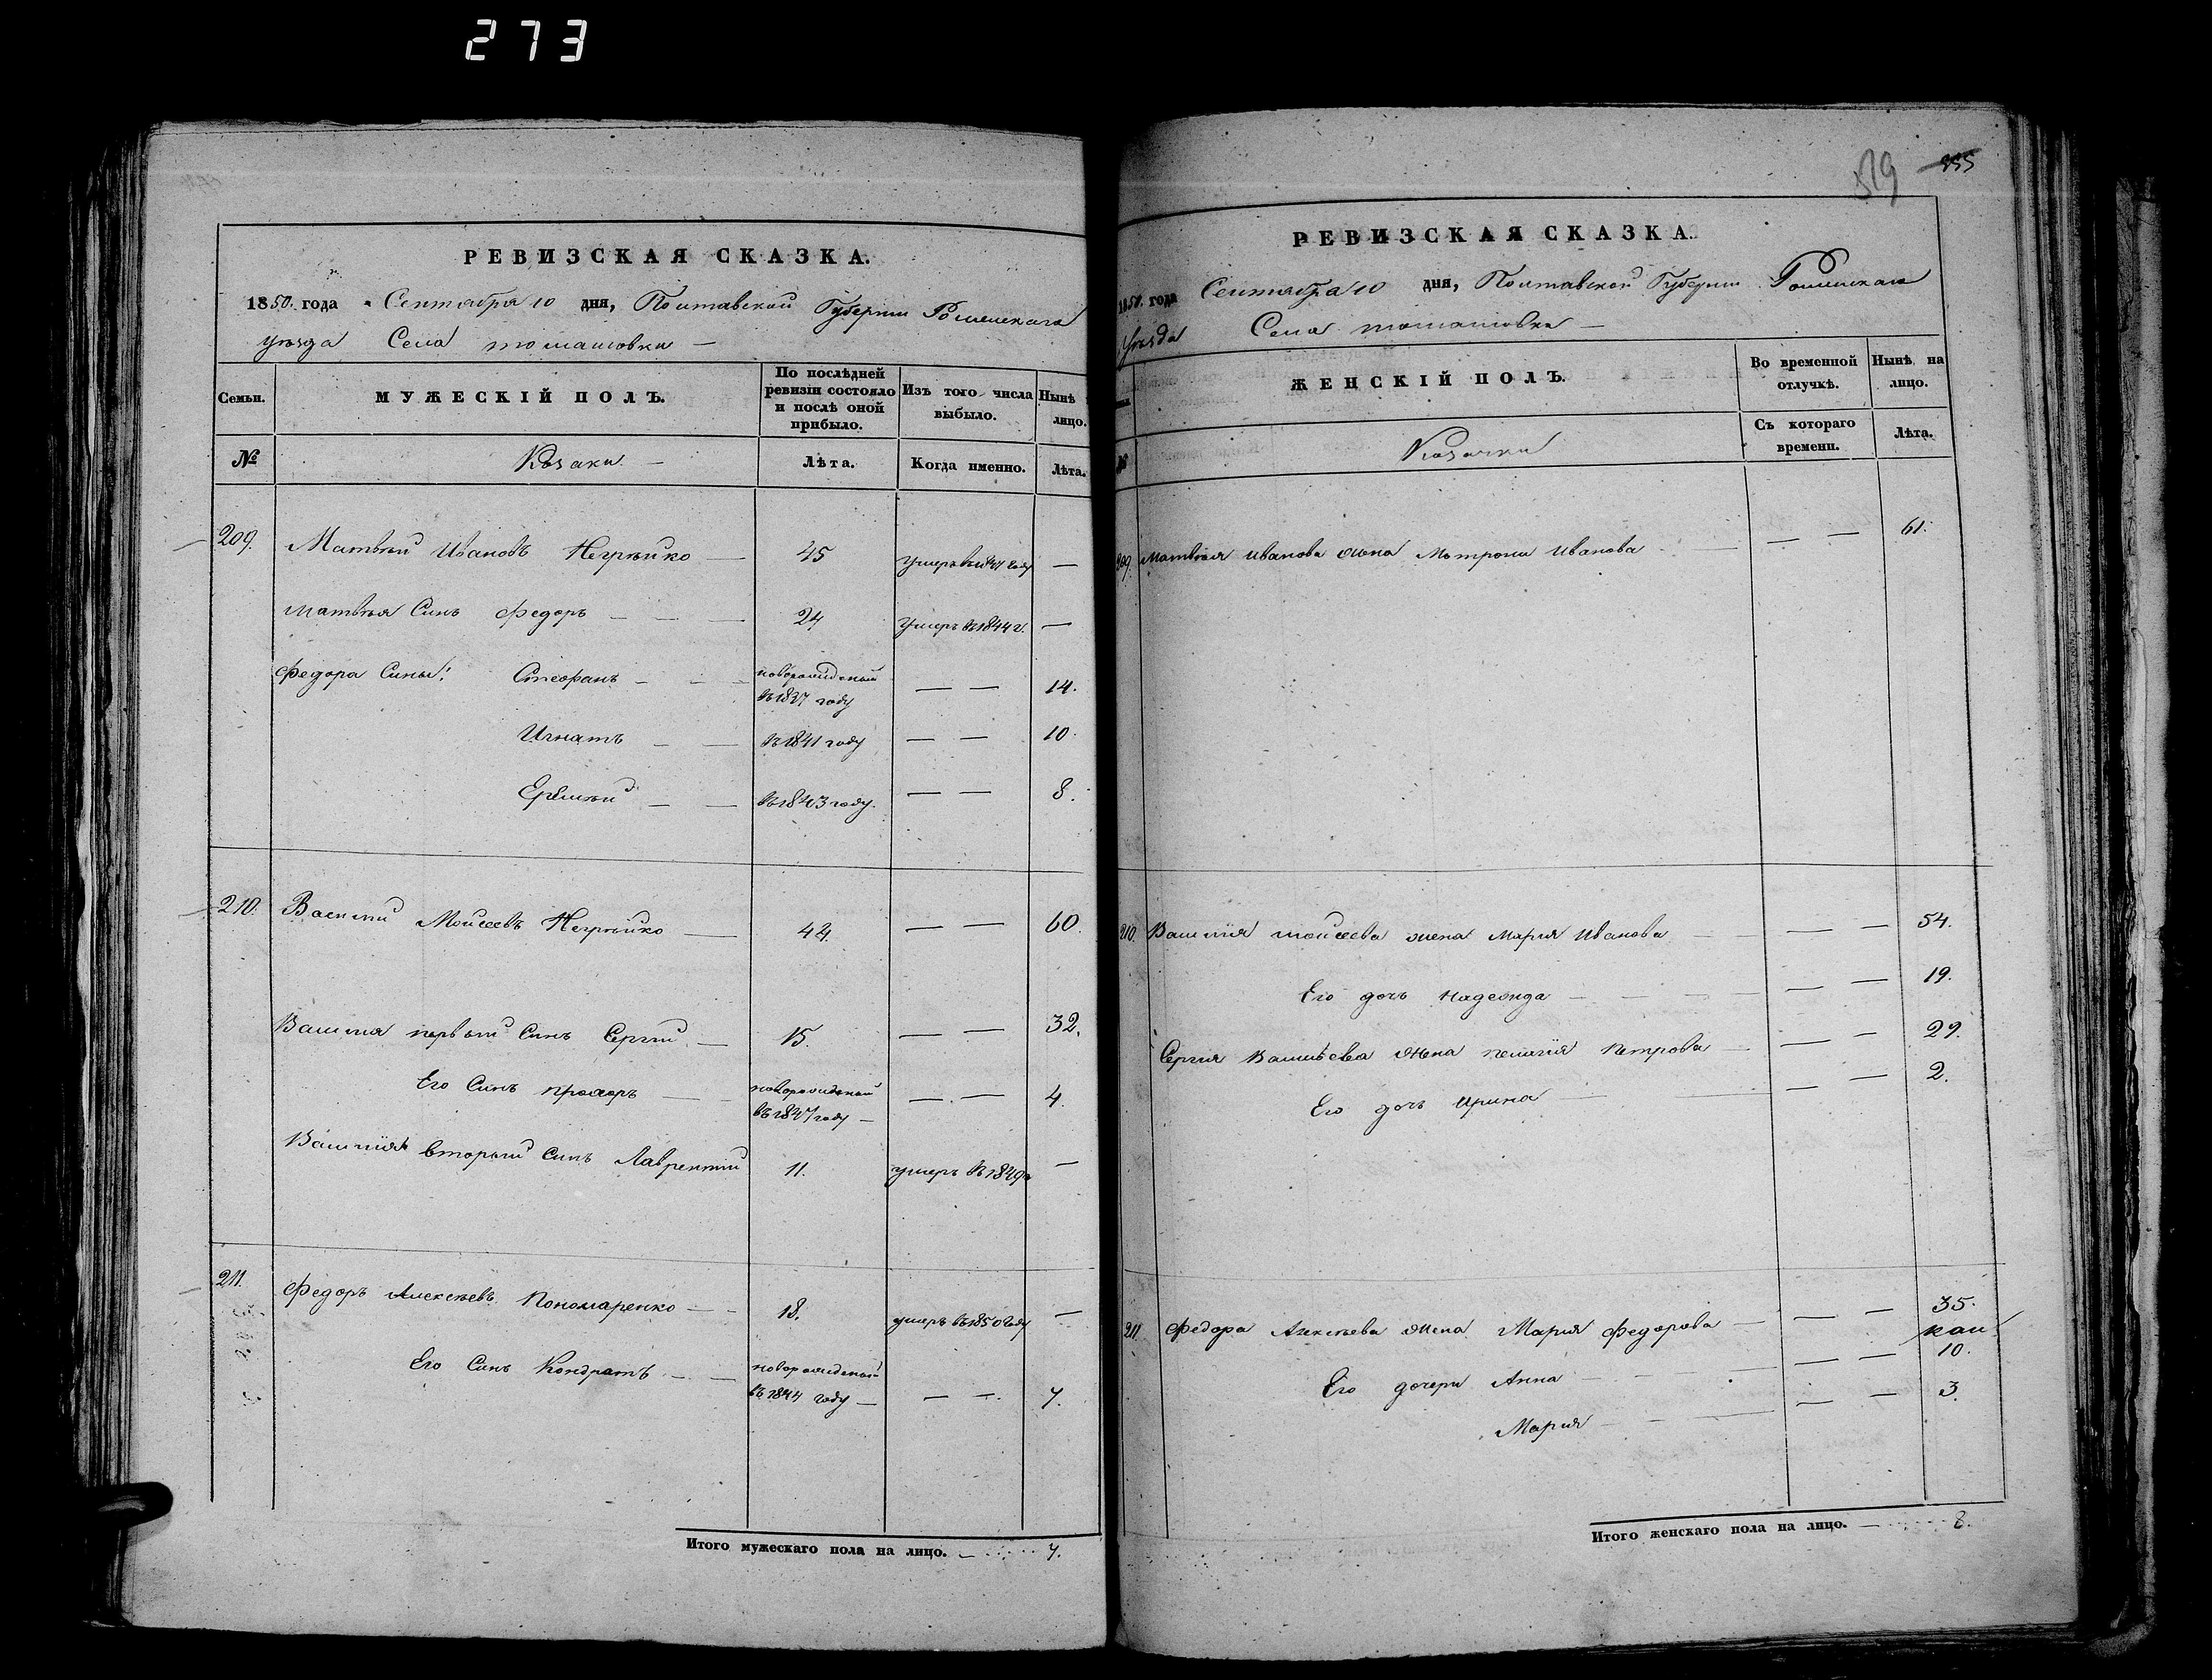 273
РЕВИЗСКАЯ СКАЗКА.
1850. года Сентября 10 дня, Полтавской Губернии Роменскаго
уѣзда Села томашовки —
Семьи.
МУЖЕСКІЙ ПОЛЪ.
По послѣдней ревизіи состояло и послѣ оной прибыло.
Изъ того числа выбыло.
Нынѣ лицо.
№
Козаки. —
Лѣта.
Когда именно.
Лѣта.
209. Матвѣй Ивановъ Негрѣйко — 45 умеръ в 1841 году —
Матвѣя Синъ Федоръ — — — 24 умеръ въ 1844 г. —
Федора Сины: Стефанъ — — — новорожденный въ 1837 году — — 14.
Игнатъ — — въ 1841 году — — 10.
Еремѣй — — въ 1843 году. — — 8.
210. Василий Моисеевъ Негрѣйко — 42. — — 60.
Василия первый Синъ Сергий — 15. — — 32.
Его Синъ Прохоръ — — новорожденный въ 1847 году — — — 4.
Василия второй Синъ Лаврентий 11. умеръ въ 1849 —
211. Федоръ Алексѣевъ Пономаренко — — 18. умеръ въ 1850 году —
Его Синъ Кондратъ — — новорожденный въ 1844 году — — — 7.
Итого мужескаго пола на лицо. — 7.
519 555
РЕВИЗСКАЯ СКАЗКА.
1850. года Сентября 10 дня, Полтавской Губернии Роменскаго
Уѣзда Села томашовки —
ЖЕНСКІЙ ПОЛЪ.
Во временной отлучкѣ.
Нынѣ на лицо.
№
Козачки
Съ котораго времени.
Лѣта.
209. Матвѣя Иванова жена Мотрона Иванова — — — 61.
210. Василия Моисеева жена Мария Иванова — — — 54.
Его дочъ Надежда — — — — — 19.
Сергия Василиева жена пелагія Петрова — — — 29.
Его дочъ Ирина — — — — 2.
211. Федора Алексѣева жена Мария Федорова — — — 35.
Его дочери Анна — — — — 10.
Мария — — — — — 3.
Итого женскаго пола на лицо. — 8.